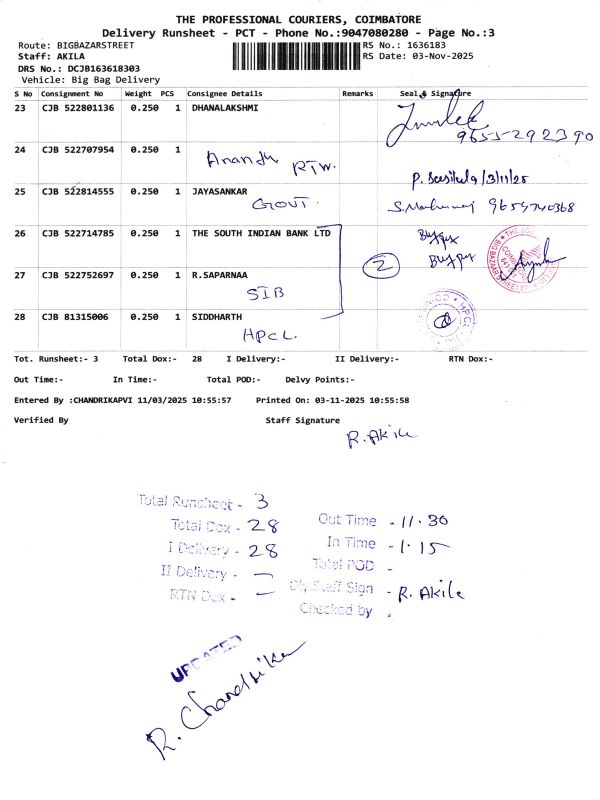 THE PROFESSIONAL COURIERS, COIMBATORE
Delivery Runsheet - PCT - Phone No.:9047080280 - Page No.:3
Route: BIGBAZARSTREET RS No.: 1636183
Staff: AKILA RS Date: 03-Nov-2025
DRS No.: DCJB163618303
Vehicle: Big Bag Delivery
S No Consignment No Weight PCS Consignee Details Remarks Seal & Signature
23 CJB 522801136 0.250 1 DHANALAKSHMI
9655292390
24 CJB 522707954 0.250 1
Anandh RTW.
3/11/25
25 CJB 522814555 0.250 1 JAYASANKAR
GOVT. 9659740368
26 CJB 522714785 0.250 1 THE SOUTH INDIAN BANK LTD
2
27 CJB 522752697 0.250 1 R.SAPARNAA
SIB
28 CJB 81315006 0.250 1 SIDDHARTH
HPCL
Tot. Runsheet:- 3 Total Dox:- 28 I Delivery:- II Delivery:- RTN Dox:-
Out Time:- In Time:- Total POD:- Delvy Points:-
Entered By :CHANDRIKAPVI 11/03/2025 10:55:57 Printed On: 03-11-2025 10:55:58
Verified By Staff Signature
R. Akila
Total Runsheet - 3
Total Dox - 28 Out Time - 11.30
I Delivery - 28 In Time - 1.15
II Delivery - Total POD -
RTN Dox - Dly.Staff Sign - R. Akila
Checked by
UPDATED
R. Chandrika